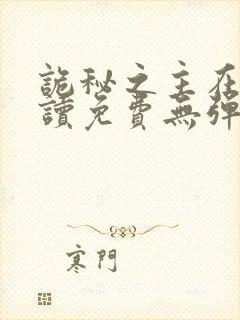 詭秘之主在
讀免費無彈
寒門